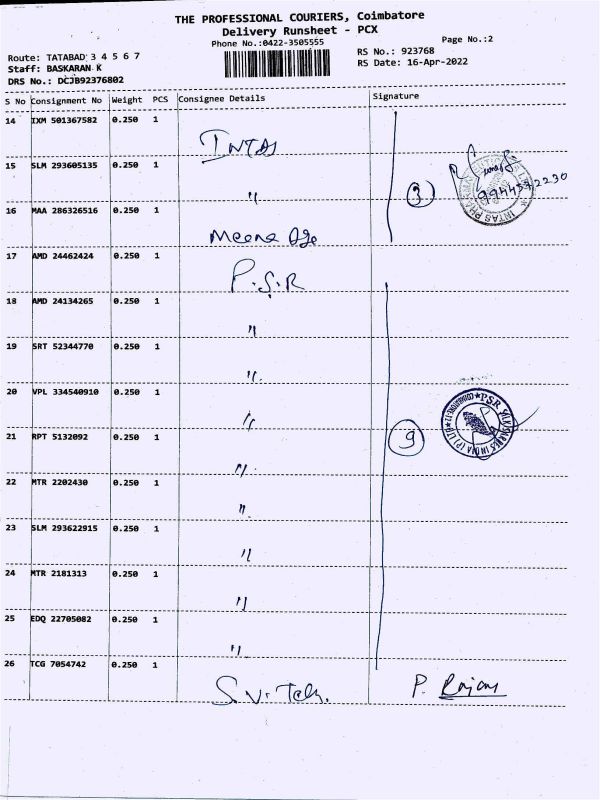 THE PROFESSIONAL COURIERS, Coimbatore
Delivery Runsheet - PCX
Phone No.:0422-3505555
Page No.:2
Route: TATABAD 3 4 5 6 7
RS No.: 923768
Staff: BASKARAN K
RS Date: 16-Apr-2022
DRS No.: DCJB92376802
S No Consignment No Weight PCS Consignee Details Signature
14 IXM 501367582 0.250 1 INTAS
15 SLM 293605135 0.250 1 "
3
9944372230
INTAS PHARMACEUTICALS LTD
16 MAA 286326516 0.250 1 Meena
17 AMD 24462424 0.250 1 P.S.R
18 AMD 24134265 0.250 1 "
19 SRT 52344770 0.250 1 "
20 VPL 334540910 0.250 1 "
PSR SILK SAREES INDIA (P) LTD COIMBATORE-12
9
21 RPT 5132092 0.250 1 "
22 MTR 2202430 0.250 1 "
23 SLM 293622915 0.250 1 "
24 MTR 2181313 0.250 1 "
25 EDQ 22705082 0.250 1 "
26 TCG 7054742 0.250 1 S.V. Tech. P. Rajan